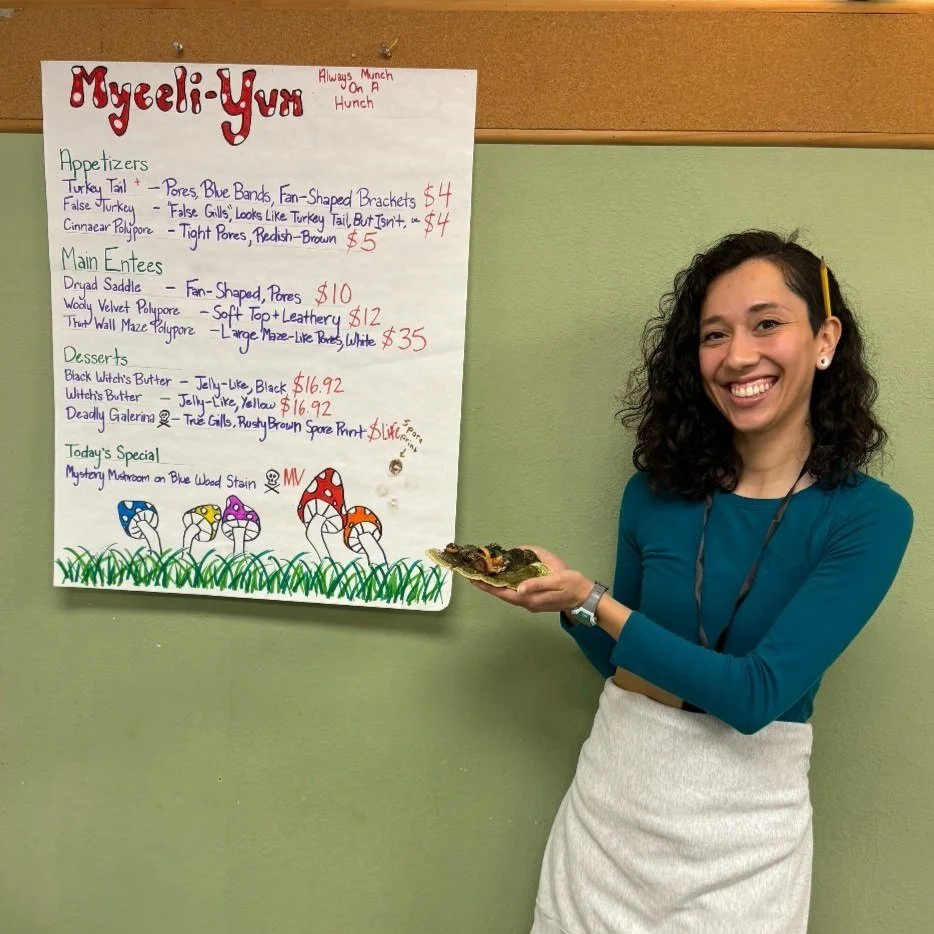 Myceli-Yum
Always Munch
On A
Hunch
Appetizers
Turkey Tail + – Pores, Blue Bands, Fan-Shaped Brackets $4
False Turkey - "False Gills", Looks Like Turkey Tail, But Isn't. $4
Cinnaear Polypore - Tight Pores, Redish-Brown $5
Main Entees
Dryad Saddle – Fan-Shaped, Pores $10
Wooly Velvet Polypore - Soft Top + Leathery $12
Thin Wall Maze Polypore - Large Maze-Like Pores, White $35
Desserts
Black Witch's Butter – Jelly-Like, Black $16.92
Witch's Butter – Jelly-Like, Yellow $16.92
Deadly Galerina – True Gills, Rusty Brown Spore Print $Life
Spore
Print
Today's Special
Mystery Mushroom on Blue Wood Stain MV